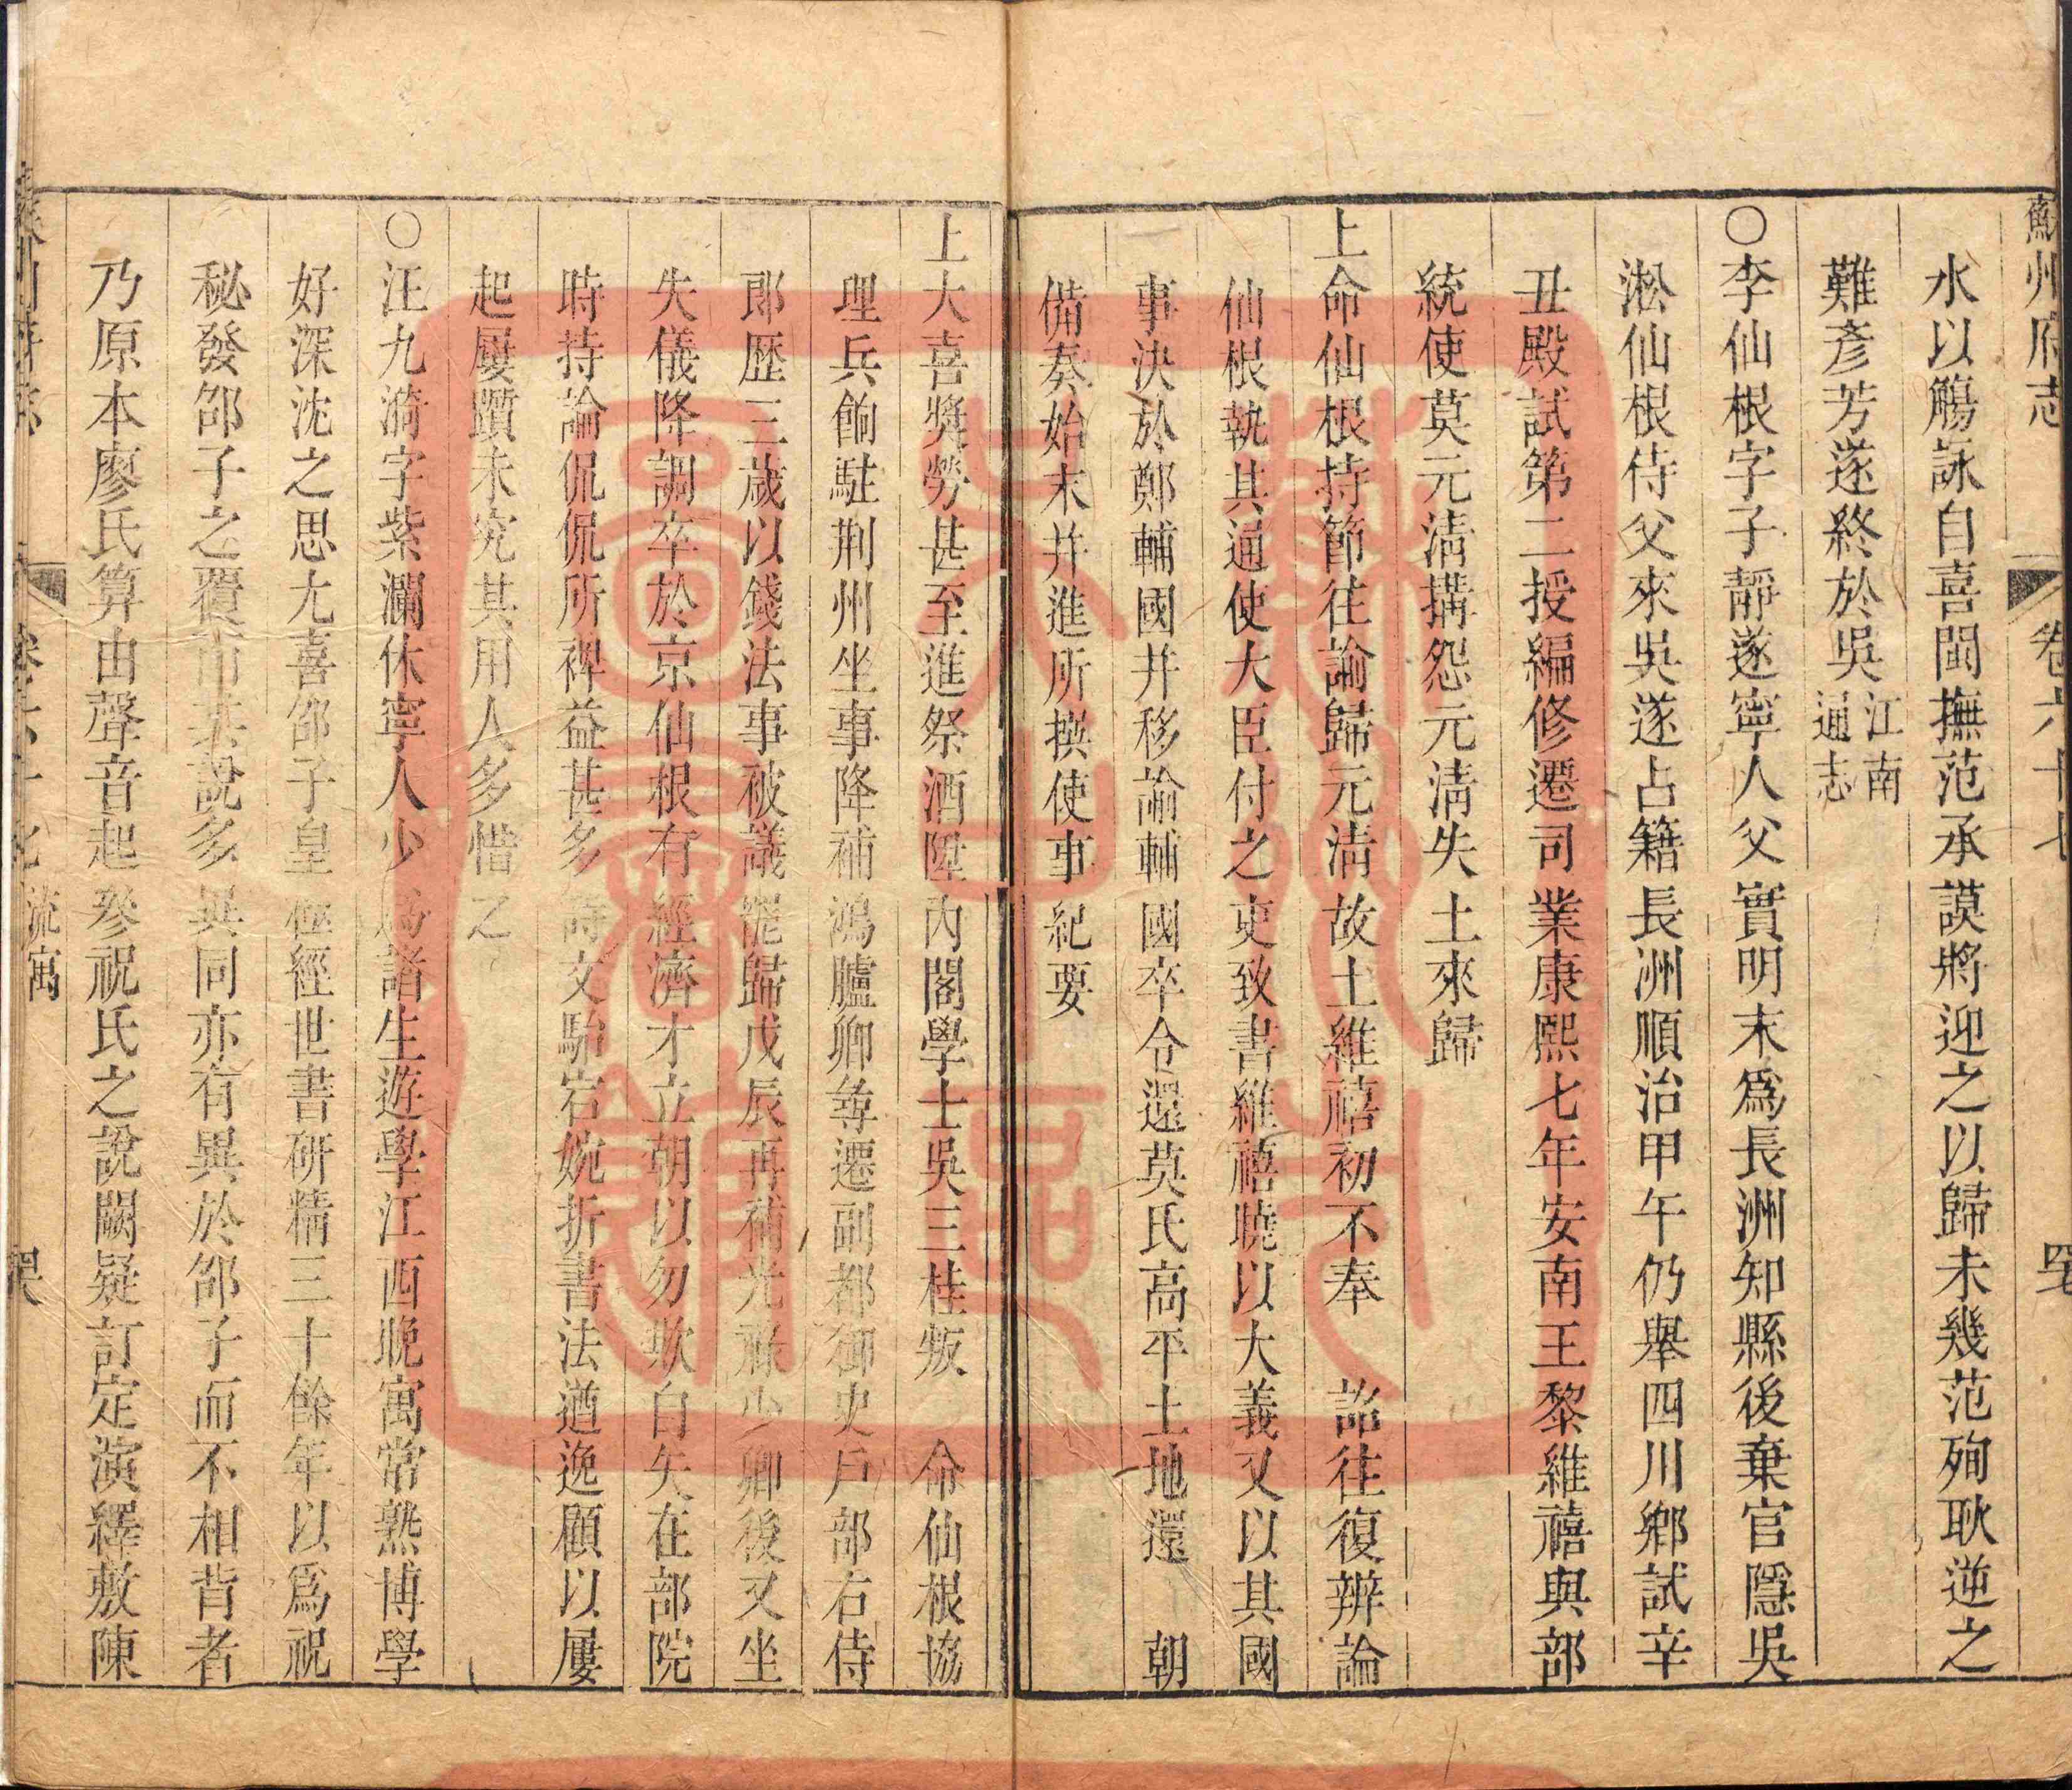 蘇州府志 卷六十七
水以觴詠自喜閩撫范承謨將迎之以歸未幾范殉耿逆之
難彥芳遂終於吳江南通志
〇李仙根字子靜遂寧人父實明末爲長洲知縣後棄官隱吳
淞仙根侍父來吳遂占籍長洲順治甲午仍舉四川鄉試辛
丑殿試第二授編修遷司業康熙七年安南王黎維禧與部
統使莫元淸搆怨元淸失土來歸
上命仙根持節往諭歸元淸故土維禧初不奉 詔往復辨論
仙根執其通使大臣付之吏致書維禧曉以大義又以其國
事決於鄭輔國并移諭輔國卒令還莫氏高平土地還 朝
備奏始末并進所撰使事紀要
上大喜獎勞甚至進祭酒陞內閣學士吳三桂叛 命仙根協
理兵餉駐荆州坐事降補鴻臚卿尋遷副都御史戶部右侍
郎歷三歲以錢法事被議罷歸戊辰再補光祿少卿後又坐
失儀降調卒於京仙根有經濟才立朝以勿欺自矢在部院
時持論侃侃所裨益甚多詩文駘宕婉折書法遒逸顧以屢
起屢躓未究其用人多惜之
〇汪九漪字紫瀾休寧人少爲諸生遊學江西晚寓常熟博學
好深沈之思尤喜邵子皇極經世書研精三十餘年以爲祝
秘發邵子之覆而其說多異同亦有異於邵子而不相背者
乃原本廖氏算由聲音起參祝氏之說闕疑訂定演繹敷陳
流寓